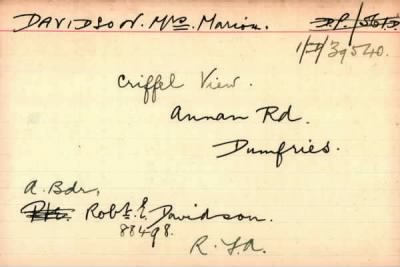 DAVIDSON. Mrs. Marion. D.P./5615.
1/D/39540.
Criffel View.
Annan Rd.
Dumfries.
A. Bdr,
Pte. Robt. E. Davidson.
88498.
R.F.A.